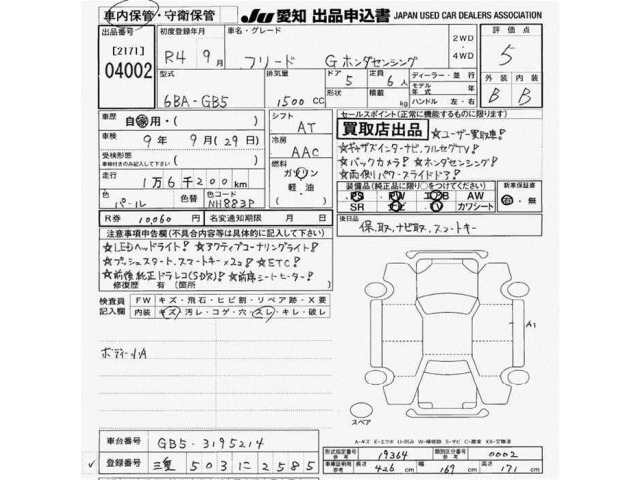 車内保管・守衛保管
JU 愛知 出品申込書 JAPAN USED CAR DEALERS ASSOCIATION
出品番号
[2171]
04002
初度登録年月
R4年 9月
車名・グレード
フリード G ホンダセンシング
2WD・4WD
評価点
5
型式
6BA-GB5
排気量
1500 CC
ドア
5
形状
定員
6人
積載
kg
ディーラー・並行
モデル年式 年
ハンドル 左・右
外装 内装
B B
車歴
自家用・( )
シフト
AT
車検
9年 9月(29日)
冷房
AAC
受検形態
車検付きのみ記入して下さい
( )
燃料
ガソリン
軽・油
走行
1万6千200km
色
パール
色替
色コード
NH883P
R券 10,060円
名変通知期限 月 日
セールスポイント(正常に機能するものに限ります)
買取店出品
☆ユーザー買取車!
☆ギャザズインターナビ、フルセグTV!
☆バックカメラ! ☆ホンダセンシング!
☆両側パワースライドドア!
装備品(純正品に限り○をつけてください)
PS PW エアB AW
SR TV カワシート
新車保証書
有・無
後日品
保、取、ナビ取、スマートキー
注意事項申告欄(不具合内容等は具体的に記入して下さい)
☆LEDヘッドライト! ☆アクティブコーナリングライト!
☆プッシュスタート、スマートキー×2コ! ☆ETC!
☆前後純正ドラレコ(SDカ)! ☆前席シートヒーター!
修復歴 有(箇所 )
検査員記入欄
FW キズ・飛石・ヒビ割・リペア跡・X要
内装 キズ・汚レ・コゲ・穴・スレ・キレ・破レ
ボディー小A
A1
スペア
A-キズ E-エクボ U-凹み W-補修跡 S-サビ C-腐食 XX-交換済
車台番号 GB5-3195214
登録番号 三重 503 に 2585
形式指定番号 参考 19364
類別区分番号 参考 0002
車庫証明用 参考 長さ 426cm 幅 169cm 高さ 171cm